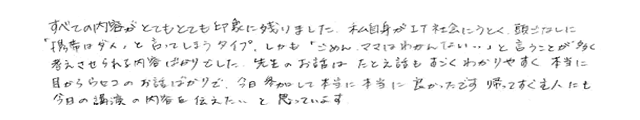 すべての内容がとてもとても印象に残りました。私自身がIT社会にうとく、頭ごなしに
「携帯はダメ」と言ってしまうタイプ。しかも「ごめん、ママはわかんない…」と言うことが多く
考えさせられる内容ばかりでした。先生のお話は たとえ話もすごくわかりやすく 本当に
目からうろこのお話ばかりで、今日参加して本当に本当に良かったです 帰ってすぐ主人にも
今日の講演の内容を伝えたい と思っています